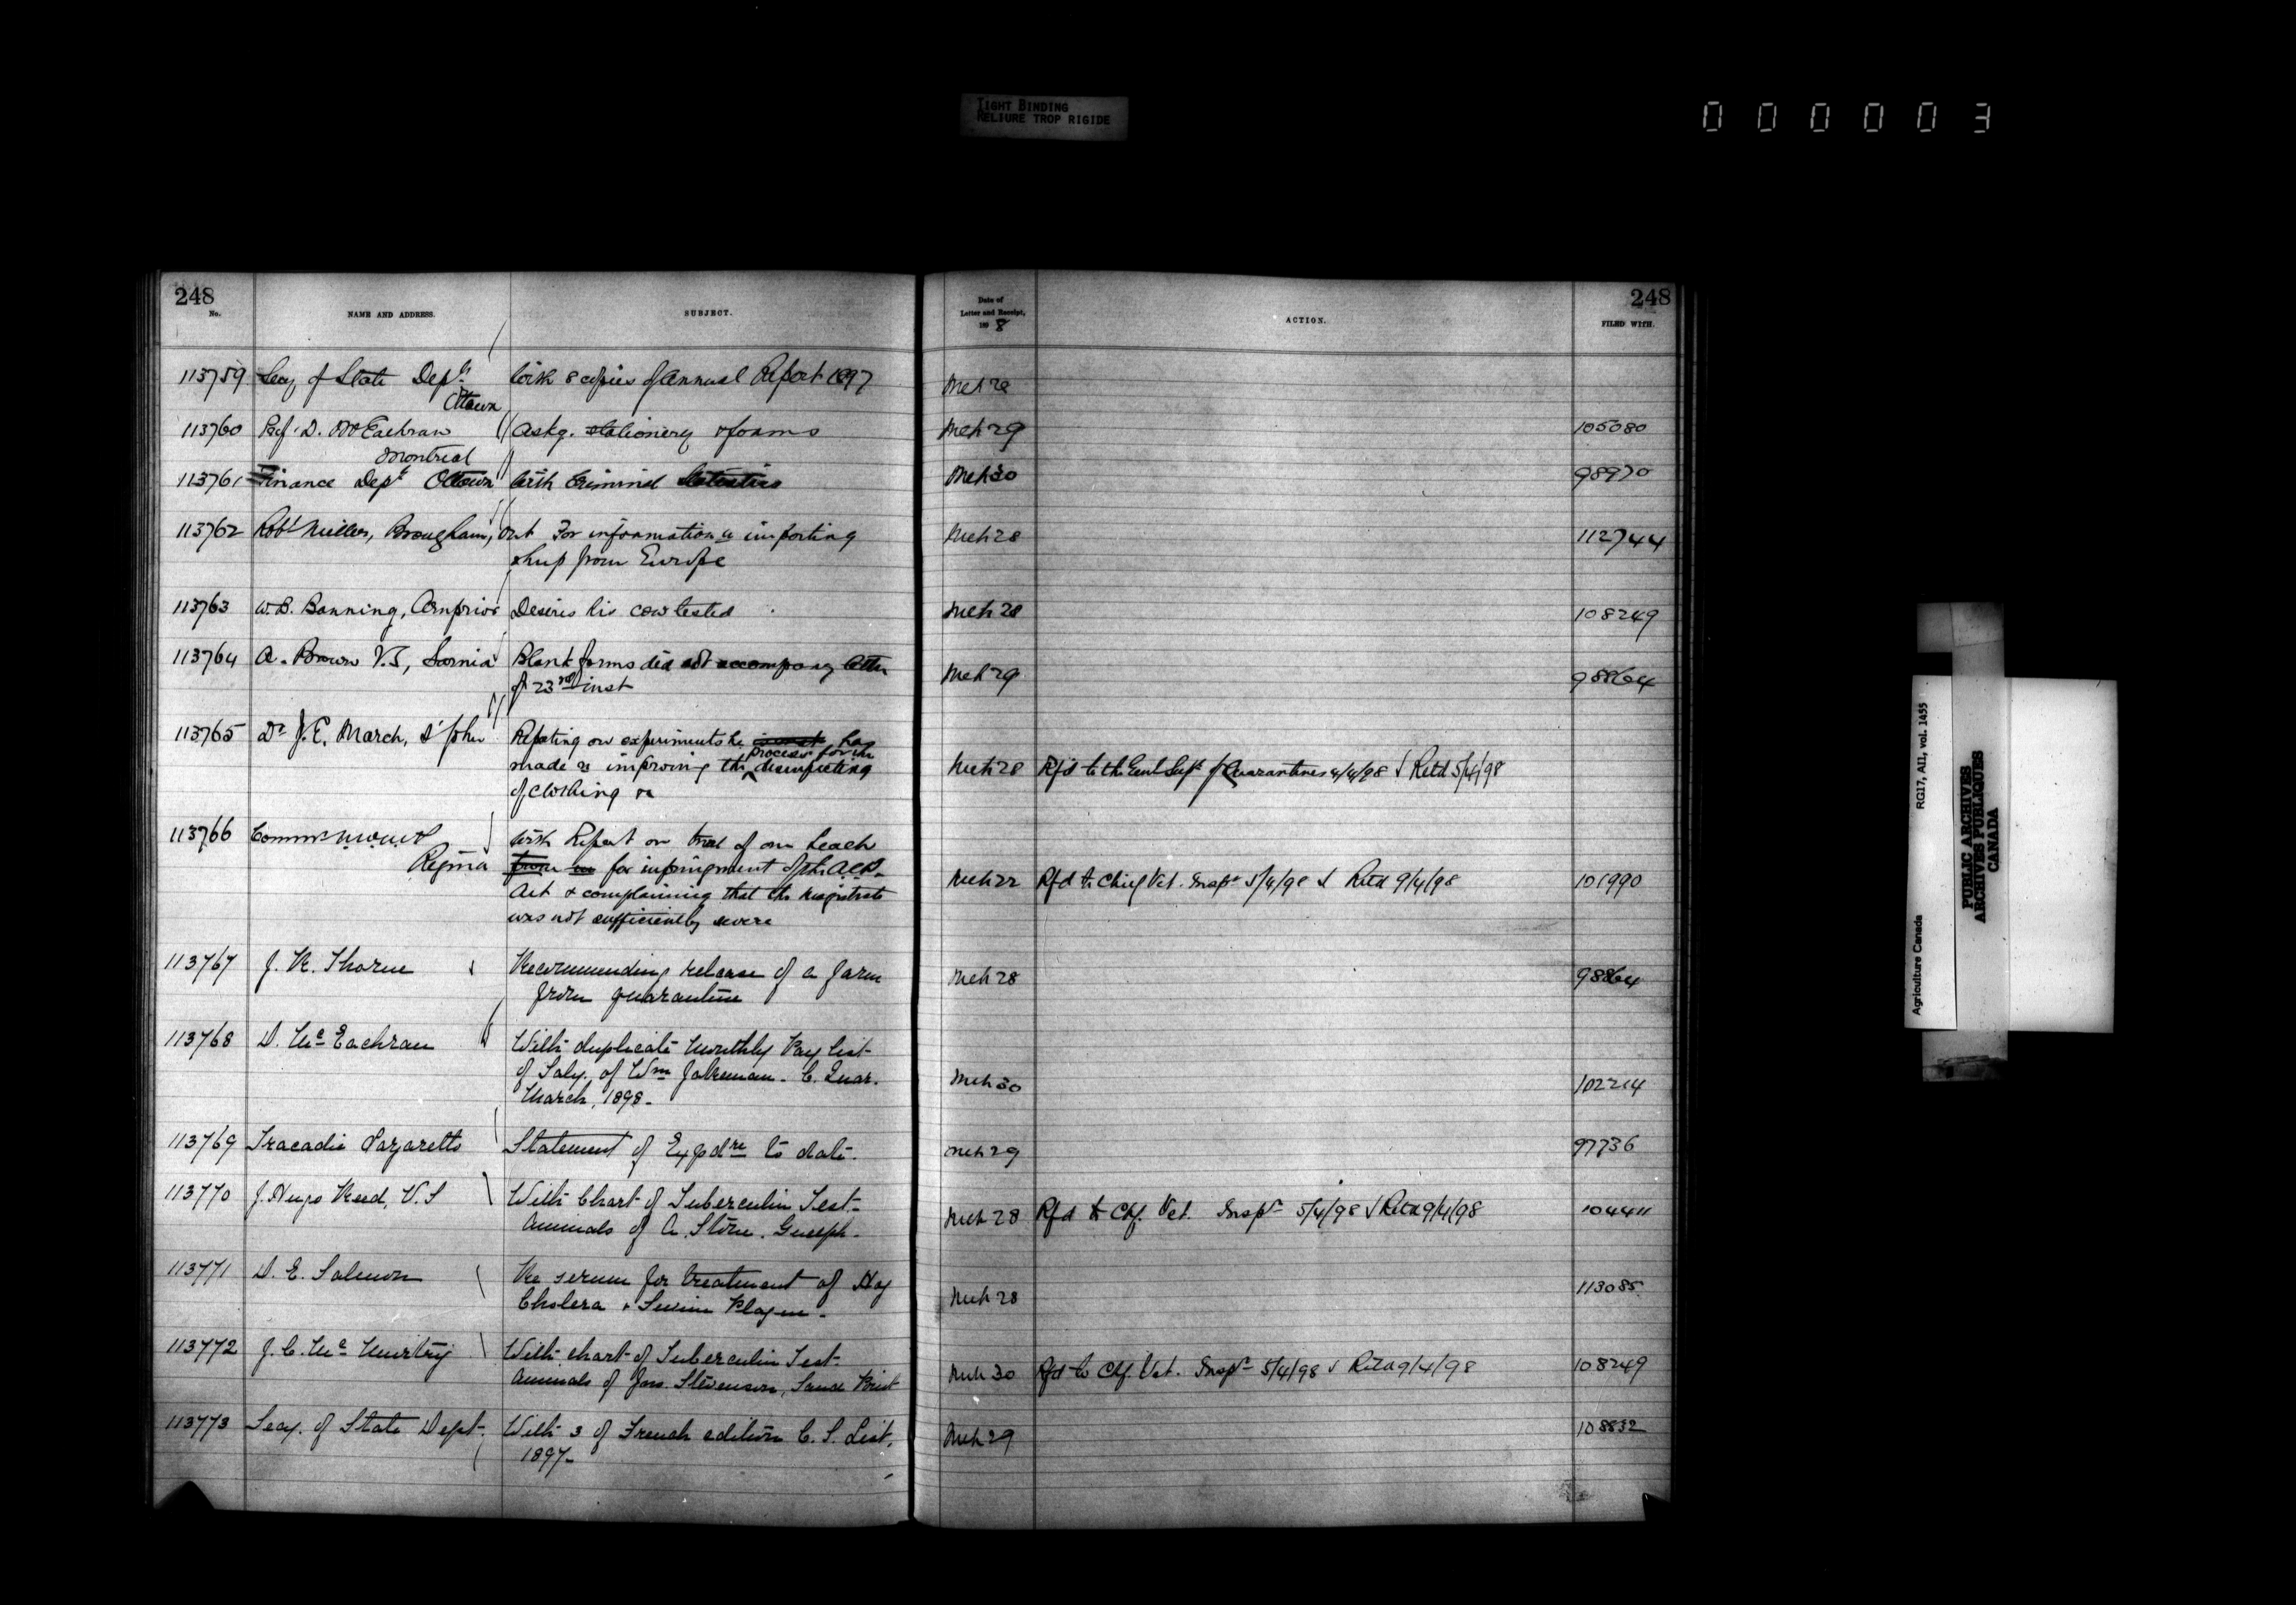 TIGHT BINDING
RELIURE TROP RIGIDE
000003
248
No.
NAME AND ADDRESS.
SUBJECT.
Date of
Letter and Receipt,
1898
ACTION.
248
FILED WITH.
113759 Secy of State Dept. With 8 copies of Annual Report 1897 Mch 28
Ottawa
113760 Prof. D. McEachran Askg. stationery & forms Mch 29 105080
Montreal
113761 Finance Dept Ottawa With Criminal Statistics Mch 30 98970
113762 Robt Miller, Brougham, Ont For information re importing Mch 28 112744
sheep from Europe
113763 W.B. Banning, Arnprior Desires his cow tested Mch 28 108249
114764 A. Brown V.S, Sarnia Blank forms did not accompany letter Mch 29 98864
of 23rd inst
113765 Dr J.E. March, St John Reporting on experiments he has
made re improving the process for the disinfecting Mch 28 Rfd to the Genl Supt of Quarantines 4/4/98 Retd 5/4/98
of clothing
113766 Commr N.W.M.P With Report on trial of one Leach
Regina for infringement of the A.C.D. Mch 22 Rfd to Chief Vet. Inspr 5/4/98 Retd 9/4/98 101990
Act & complaining that the magistrate
was not sufficiently severe
113767 J. K. Thorne Recommending release of a farm Mch 28 98864
from quarantine
113768 D. McEachran With duplicate monthly Pay List
of Saly. of Wm Jakeman. C. Quar. Mch 30 102214
March, 1898-
113769 Tracadie Lazaretto Statement of Expdre to date. Mch 29 97736
113770 J. Hugo Reed, V.S With Chart of Tuberculin Test-
Animals of A. Stone. Guelph. Mch 28 Rfd to Chf. Vet. Inspr 5/4/98 Retd 9/4/98 104411
113771 D. E. Salmon Re serum for treatment of Hog
Cholera & Swine Plague. Mch 28 113085
113772 J. C. McMurtry With chart of Tuberculin Test-
Animals of Jas. Stevenson, Sand Point Mch 30 Rfd to Chf. Vet. Inspr 5/4/98 Retd 9/4/98 108249
113773 Secy. of State Dept. With 3 of French edition C. S. List, Mch 29 108832
1897-
Agriculture Canada RG17, AII, vol. 1455
PUBLIC ARCHIVES
ARCHIVES PUBLIQUES
CANADA